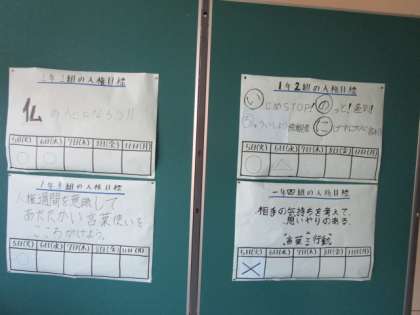 組の人権目標
仏
の人になろう!!
5日(火) 6日(水) 7日(木) 8日(金) 11日(月)
1年2組の人権目標
いじめSTOP! のっと!差別!
に
5日(火) 6日(水) 7日(木) 8日(金) 11日(月)
組の人権目標
人権週間を意識して
あたたかい言葉使いを
こころがけよう。
5日(火) 6日(水) 7日(木) 8日(金) 11日(月)
一年四組の人権目標
相手の気持ちを考えて、
思いやりのある、
言葉と行動
5日(火) 6日(水) 7日(木) 8日(金) 11日(月)